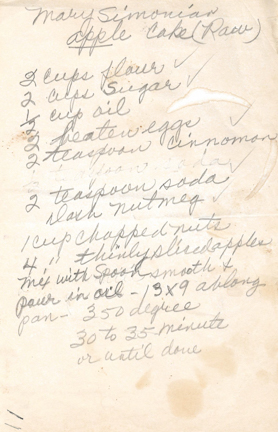 Mary Simonian
apple Cake (Raw)
2 cups flour
2 cups Sugar
1/2 cup oil
2 beaten eggs
2 teaspoon Cinnamon
2 teaspoon soda
Dash nutmeg
1 cup chopped nuts
4 " thinly sliced apples
mix with Spoon smooth &
pour in oil - 13x9 oblong
pan - 350 degree
30 to 35 minute
or until done